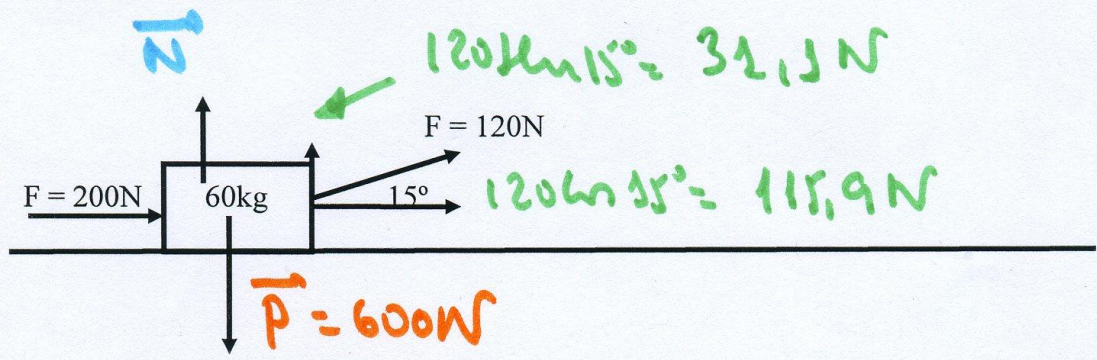 N
120sen15º= 31,1N
F = 120N
F = 200N
60kg
15º
120cos15º= 115,9N
P = 600N